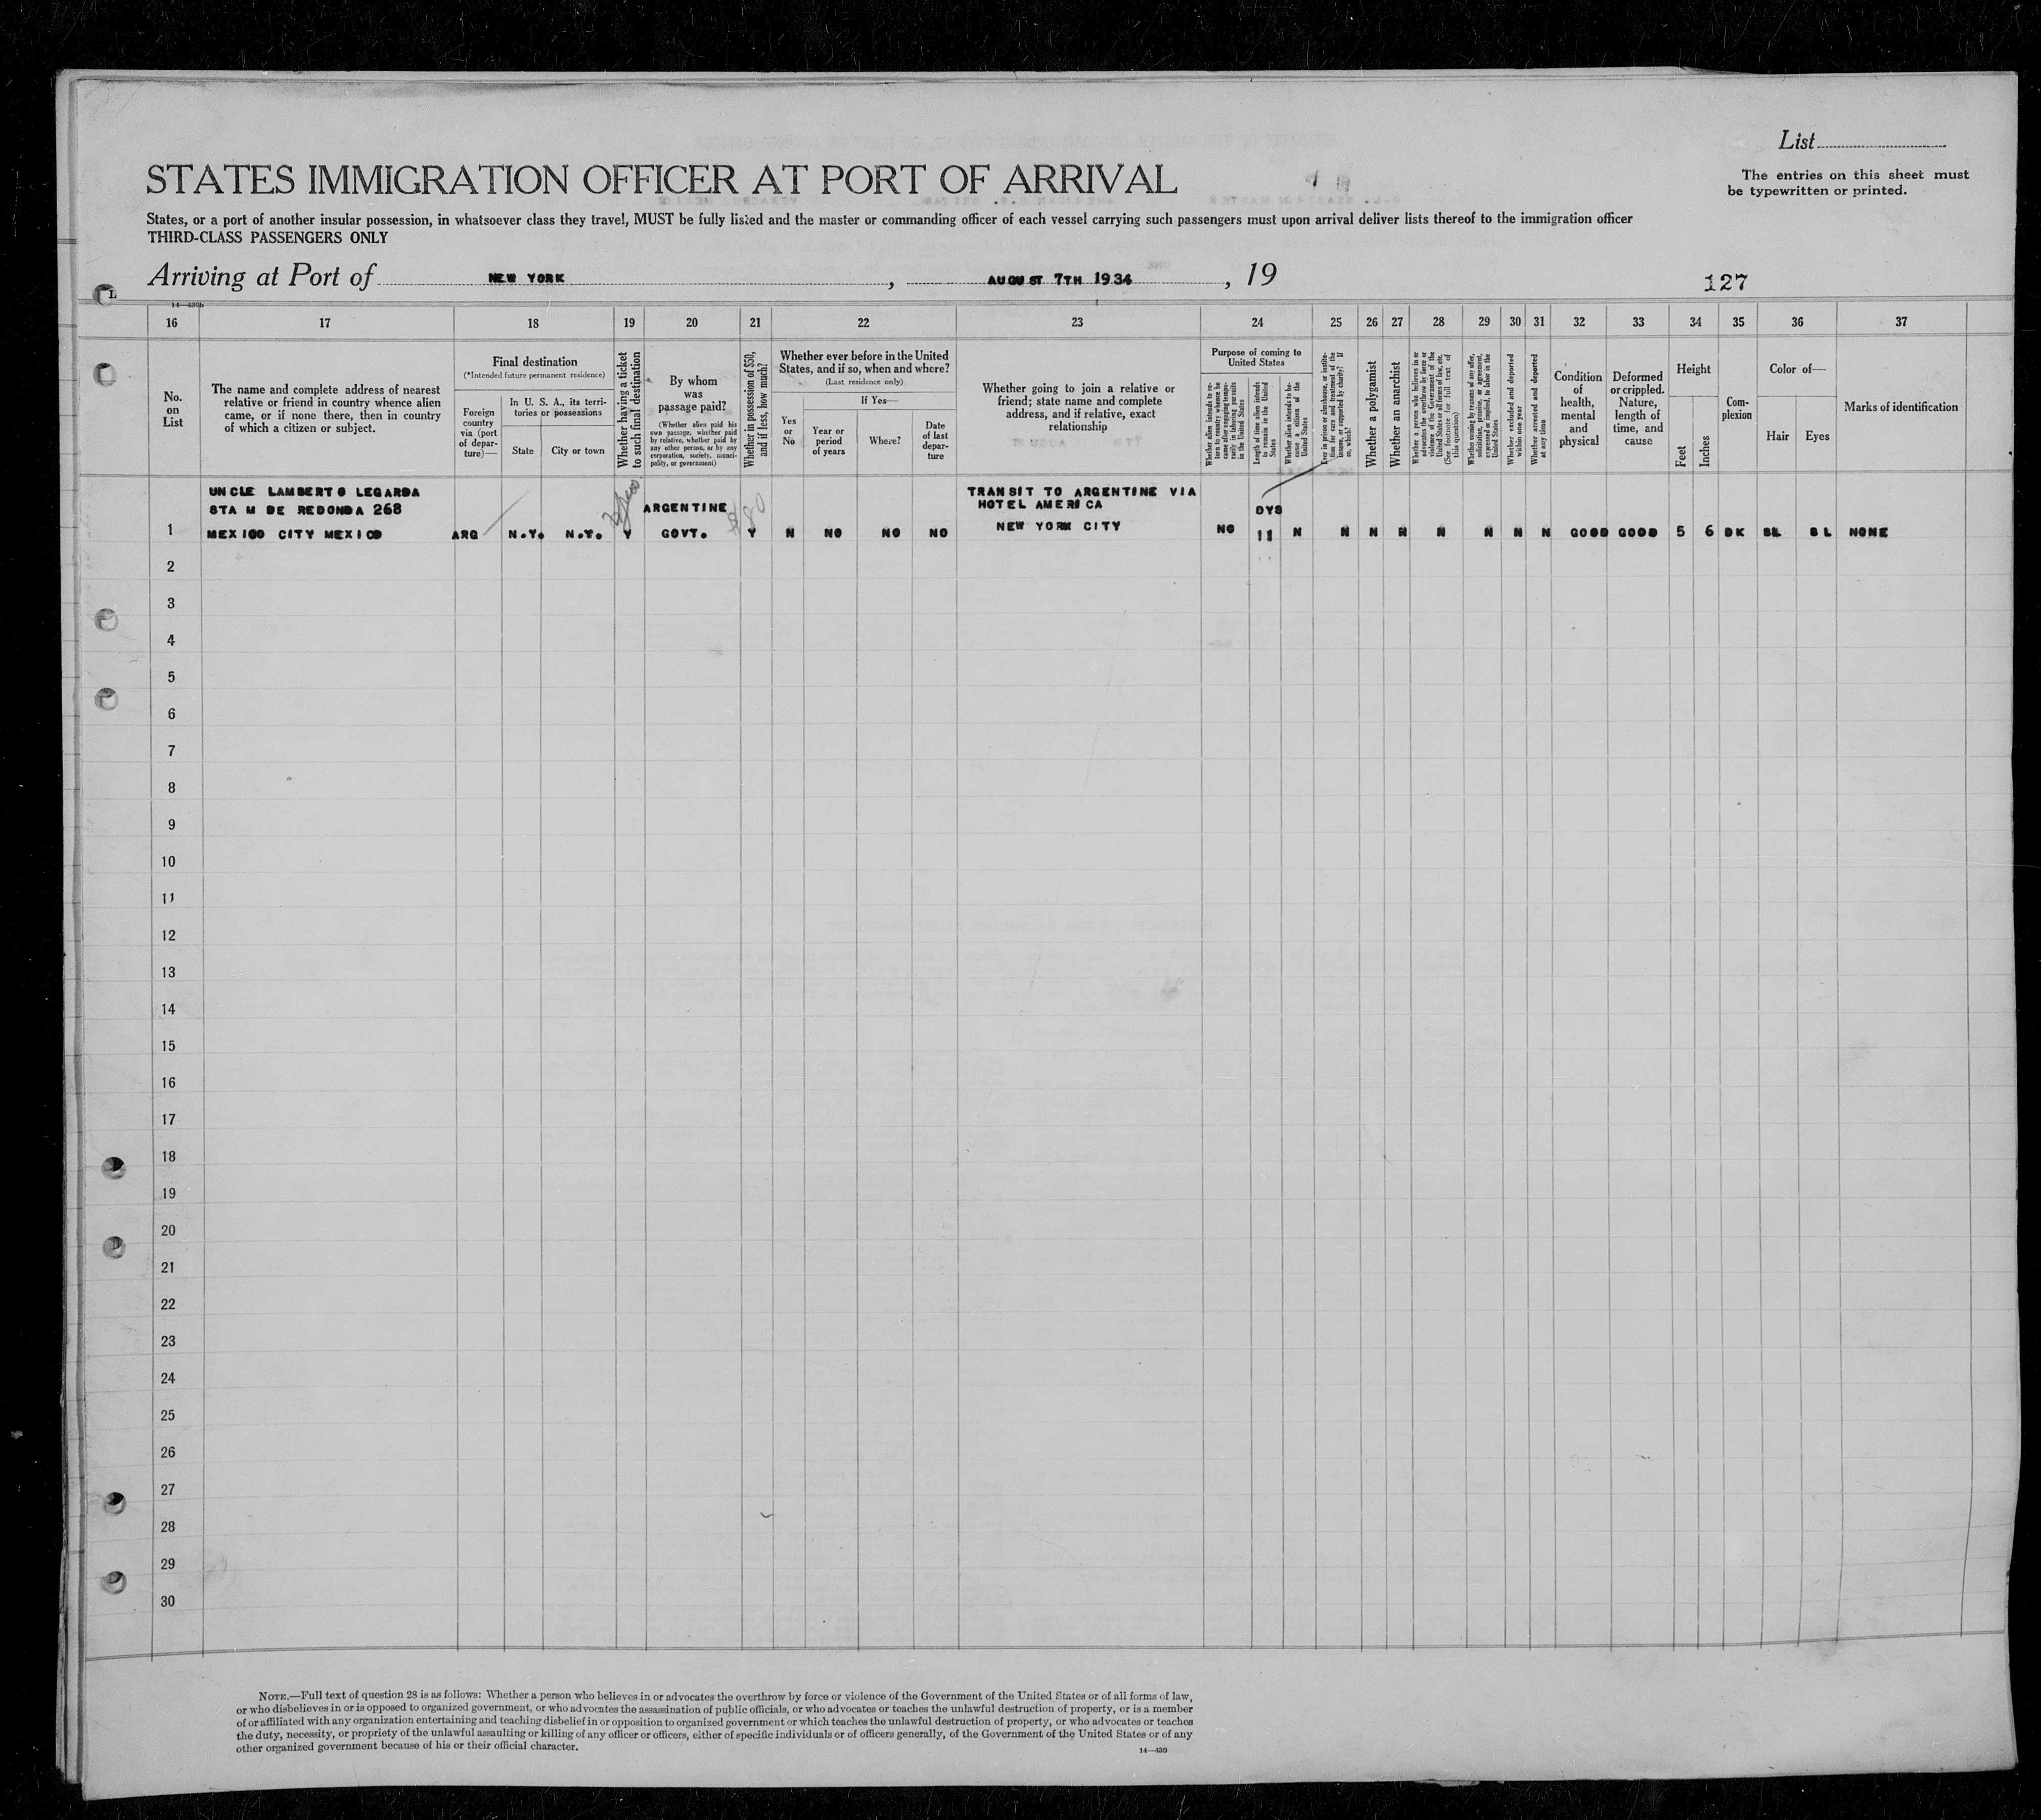 List
STATES IMMIGRATION OFFICER AT PORT OF ARRIVAL
The entries on this sheet must
be typewritten or printed.
States, or a port of another insular possession, in whatsoever class they travel, MUST be fully listed and the master or commanding officer of each vessel carrying such passengers must upon arrival deliver lists thereof to the immigration officer
THIRD-CLASS PASSENGERS ONLY
Arriving at Port of NEW YORK, AUGUST 7TH 1934, 19
127
14—430b
16 17 18 19 20 21 22 23 24 25 26 27 28 29 30 31 32 33 34 35 36 37
No.
on
List
The name and complete address of nearest
relative or friend in country whence alien
came, or if none there, then in country
of which a citizen or subject.
Final destination
(*Intended future permanent residence)
Foreign
country
via (port
of depar-
ture)—
In U. S. A., its terri-
tories or possessions
State
City or town
Whether having a ticket
to such final destination
By whom
was
passage paid?
(Whether alien paid his
own passage, whether paid
by relative, whether paid by
any other person, or by any
corporation, society, munici-
pality, or government)
Whether in possession of $50,
and if less, how much?
Whether ever before in the United
States, and if so, when and where?
(Last residence only)
Yes
or
No
If Yes—
Year or
period
of years
Where?
Date
of last
depar-
ture
Whether going to join a relative or
friend; state name and complete
address, and if relative, exact
relationship
Purpose of coming to
United States
Whether alien intends to re-
turn to country whence he
came after engaging tempo-
rarily in laboring pursuits
in the United States
Length of time alien intends
to remain in the United
States
Whether alien intends to be-
come a citizen of the
United States
Ever in prison or almshouse, or institu-
tion for care and treatment of the
insane, or supported by charity? If
so, which?
Whether a polygamist
Whether an anarchist
Whether a person who believes in or
advocates the overthrow by force or
violence of the Government of the
United States or all forms of law, etc.
(See footnote for full text of
this question)
Whether coming by reason of any offer,
solicitation, promise, or agreement,
expressed or implied, to labor in the
United States
Whether excluded and deported
within one year
Whether arrested and deported
at any time
Condition
of
health,
mental
and
physical
Deformed
or crippled.
Nature,
length of
time, and
cause
Height
Feet
Inches
Com-
plexion
Color of—
Hair
Eyes
Marks of identification
UNCLE LAMBERTO LEGARDA TRANSIT TO ARGENTINE VIA
STA M DE REDONDA 268 ARGENTINE $80 HOTEL AMERICA DYS
1 MEXICO CITY MEXICO ARG N.Y. N.Y. Y GOVT. Y N NO NO NO NEW YORK CITY NO 11 N N N N N N N N GOOD GOOD 5 6 DK BL BL NONE
2
3
4
5
6
7
8
9
10
11
12
13
14
15
16
17
18
19
20
21
22
23
24
25
26
27
28
29
30
NOTE.—Full text of question 28 is as follows: Whether a person who believes in or advocates the overthrow by force or violence of the Government of the United States or of all forms of law,
or who disbelieves in or is opposed to organized government, or who advocates the assassination of public officials, or who advocates or teaches the unlawful destruction of property, or is a member
of or affiliated with any organization entertaining and teaching disbelief in or opposition to organized government or which teaches the unlawful destruction of property, or who advocates or teaches
the duty, necessity, or propriety of the unlawful assaulting or killing of any officer or officers, either of specific individuals or of officers generally, of the Government of the United States or of any
other organized government because of his or their official character.
14—430